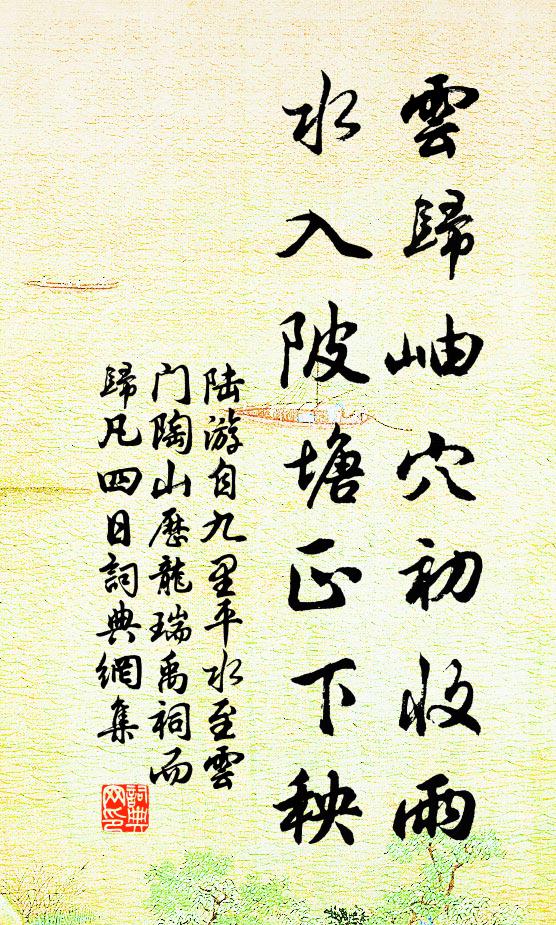 雲歸岫穴初收雨
水入陂塘正下秧
陆游自九里平水至雲
门陶山歷龍瑞禹祠而
歸凡四日詞典網集
詞典
网印